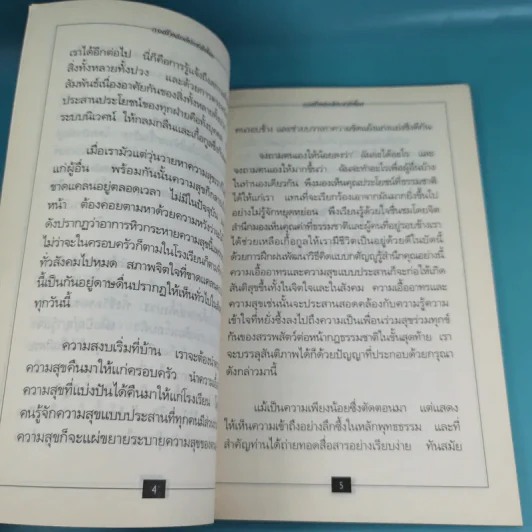 เราได้อีกต่อไป นี่ก็คือการรู้แจ้งถึง
สิ่งทั้งหลายทั้งปวง และด้วยการ
สัมพันธ์เนื่องอาศัยกันของสิ่งทั้งหลาย
ประสานประโยชน์ของทุกฝ่ายคือทั้ง
ระบบนิเวศน์ ให้กลมกลืนและเกื้อกูล
เมื่อเรามัวแต่วุ่นวายหาความสุข
แก่ผู้อื่น พร้อมกันนั้นความสุขก็
ขาดแคลนอยู่ตลอดเวลา ไม่มีในปัจจุบัน
หน้า ต้องคอยตามหาด้วยความหวัง
ดังปรากฏว่าอาการหิวกระหายความสุข
ไม่ว่าจะในครอบครัวก็ตามในโรงเรียนก็ตาม
ทั่วสังคมไปหมด สภาพจิตใจที่ขาดแคลน
นี้เป็นกันอยู่ดาษดื่นปรากฏให้เห็นทั่วไป
ทุกวันนี้
ความสงบเริ่มที่บ้าน เราจะต้อง
ความสุขคืนมาให้แก่ครอบครัว นำความ
ความสุขที่แบ่งปันได้คืนมาให้แก่โรงเรียน
คนรู้จักความสุขแบบประสานที่ทุกคนมี
ความสุขก็จะแผ่ขยายระบายความสุขของ
4
คนรอบข้าง และช่วยบรรเทาความขัดแย้งแก่งแย่งชิงดีกัน
จงถามตนเองให้น้อยลงว่า ฉันจะได้อะไร และ
จงถามตนเองให้มากขึ้นว่า ฉันจะทำอะไรเพื่อผู้อื่นบ้าง
ในทำนองเดียวกัน พึงมองเห็นคุณประโยชน์ที่ธรรมชาติ
ได้ให้แก่เรา แทนที่จะเรียกร้องเอาจากมันมากยิ่งขึ้นไป
อย่างไม่รู้จักหยุดหย่อน พึงเรียนรู้ด้วยใจชื่นชมโดยจิต
สำนึกมองเห็นคุณค่าที่ธรรมชาติและผู้คนที่อยู่รอบข้างเรา
ได้ช่วยเหลือเกื้อกูลให้เรามีชีวิตเป็นอยู่ด้วยดีในบัดนี้
ด้วยการฝึกฝนพัฒนาวิธีคิดแบบกตัญญูรู้สำนึกคุณอย่างนี้
ความเอื้ออาทรและความสุขแบบประสานก็จะก่อให้เกิด
สันติสุขขึ้นทั้งในจิตใจและในสังคม ความเอื้ออาทรและ
ความสุขเช่นนั้นจะประสานสอดคล้องกับความรู้ความ
เข้าใจที่หยั่งซึ้งลงไปถึงความเป็นเพื่อนร่วมสุขร่วมทุกข์
กันของสรรพสัตว์ต่อหน้ากฎธรรมชาติในขั้นสุดท้าย เรา
จะบรรลุสันติภาพได้ก็ด้วยปัญญาที่ประกอบด้วยกรุณา
ดังกล่าวมานี้
แม้เป็นความเพียงน้อยซึ่งตัดตอนมา แต่แสดง
ให้เห็นความเข้าถึงอย่างลึกซึ้งในหลักพุทธธรรม และที่
สำคัญท่านได้ถ่ายทอดสื่อสารอย่างเรียบง่าย ทันสมัย
5